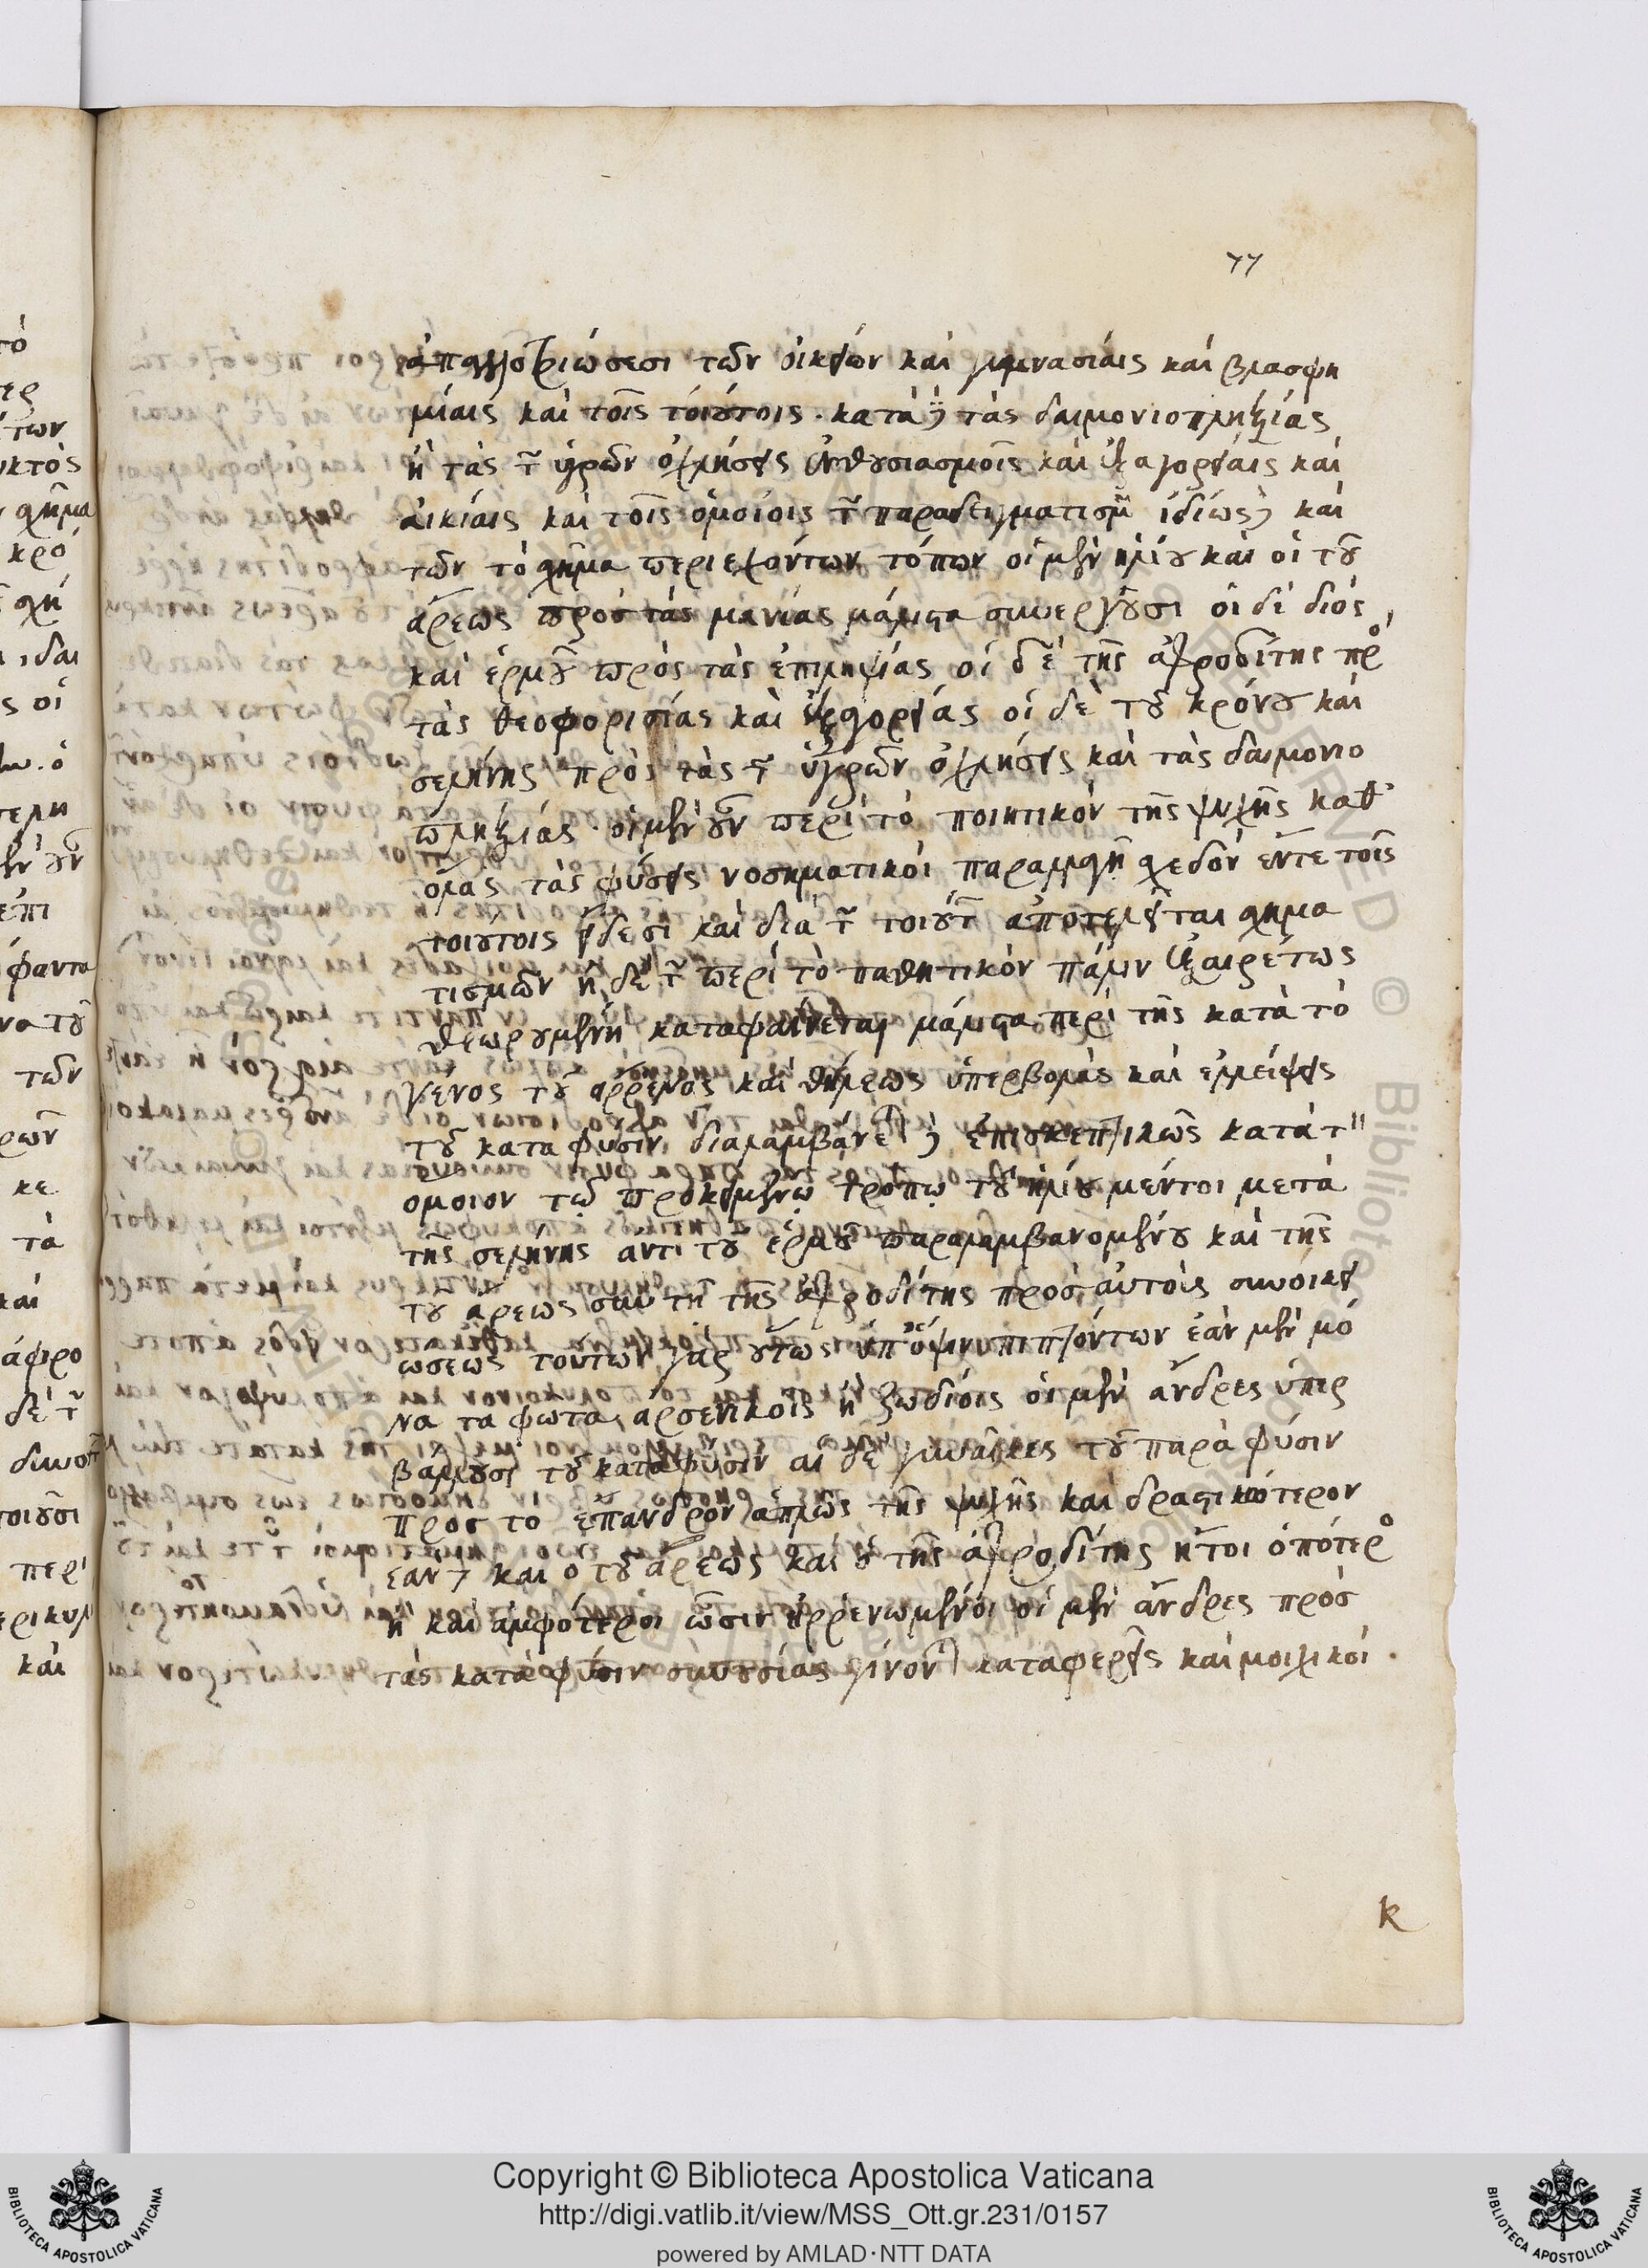 77
ἀπαλλοτριώσεσι τῶν οἰκείων καὶ γυμνασίαις καὶ βλασφη
μίαις καὶ τοῖς τοιούτοις . κατὰ δὲ τὰς δαιμονιοπληξίας
ἢ τὰς τῶν ὑγρῶν ὀχλήσεις ἐνθουσιασμοῖς καὶ ἐξαγορείαις καὶ
αἰκίαις καὶ τοῖς ὁμοίοις τῶν παραδειγματισμῶν ἰδίως δὲ καὶ
τῶν τὸ σχῆμα περιεχόντων τόπων οἱ μὲν ἡλίου καὶ οἱ τοῦ
ἄρεως πρὸς τὰς μανίας μάλιστα συνεργοῦσι οἱ δὲ διός
καὶ ἑρμοῦ πρὸς τὰς ἐπιληψίας οἱ δὲ τῆς ἀφροδίτης πρὸς
τὰς θεοφορισίας καὶ ἐξαγορείας οἱ δὲ τοῦ κρόνου καὶ
σελήνης πρὸς τὰς τῶν ὑγρῶν ὀχλήσεις καὶ τὰς δαιμονιο
πληξίας . οἱ μὲν οὖν περὶ τὸ ποιητικὸν τῆς ψυχῆς καθ'
ὅλας τὰς φύσεις νοσηματικοὶ παραλλαγῆ σχεδὸν ἔντε τοῖς
τοιούτοις εἴδεσι καὶ διὰ τῶν τοιούτων ἀποτελεῖται σχημα
τισμῶν ἡ δὲ τῶν περὶ τὸ παθητικὸν πάλιν ἐξαιρέτως
θεωρουμένη καταφαίνεται μάλιστα περὶ τῆς κατὰ τὸ
γένος τοῦ ἄρρενος καὶ θήλεως ὑπερβολὰς καὶ ἐλλείψεις
τοῦ κατα φυσιν διαλαμβάνεται δὲ ἐπισκεπτικῶς κατὰ τὸ
ομοιον τῷ προκειμένῳ τρόπῳ τοῦ ἡλίου μέντοι μετὰ
τῆς σελήνης ἀντι τοῦ ἑρμοῦ παραλαμβανομένου καὶ τῆς
τοῦ ἄρεως σὺν τῆ τῆς ἀφροδίτης πρὸς αὐτοὺς συνοικει
ώσεως τούτων γὰρ οὕτως ὑπ' ὄψιν πιπτόντων ἐὰν μὲν μό
να τα φῶτα ἀρσενικοῖς ἢ ζωδίοις οἱ μὲν ἄνδρες ὑπερ
βάλλουσι τοῦ κατὰ φύσιν αἱ δὲ γυναῖκες τοῦ παρὰ φύσιν
πρὸς τὸ ἔπανδρον ἁπλῶς τῆς ψυχῆς καὶ δραστικότερον
ἐαν δὲ καὶ ὁ τοῦ ἄρεως καὶ ὁ τῆς ἀφροδίτης ἤτοι ὁπότερος
ἢ καὶ ἀμφότεροι ὦσιν ἠρρενωμένοι οἱ μὲν ἄνδρες πρὸς
τὰς κατὰ φύσιν συνουσίας γίνονται καταφερεῖς καὶ μοιχικοί .
k
Copyright © Biblioteca Apostolica Vaticana
http://digi.vatlib.it/view/MSS_Ott.gr.231/0157
powered by AMLAD·NTT DATA
BIBLIOTECA APOSTOLICA VATICANA
BIBLIOTECA APOSTOLICA VATICANA